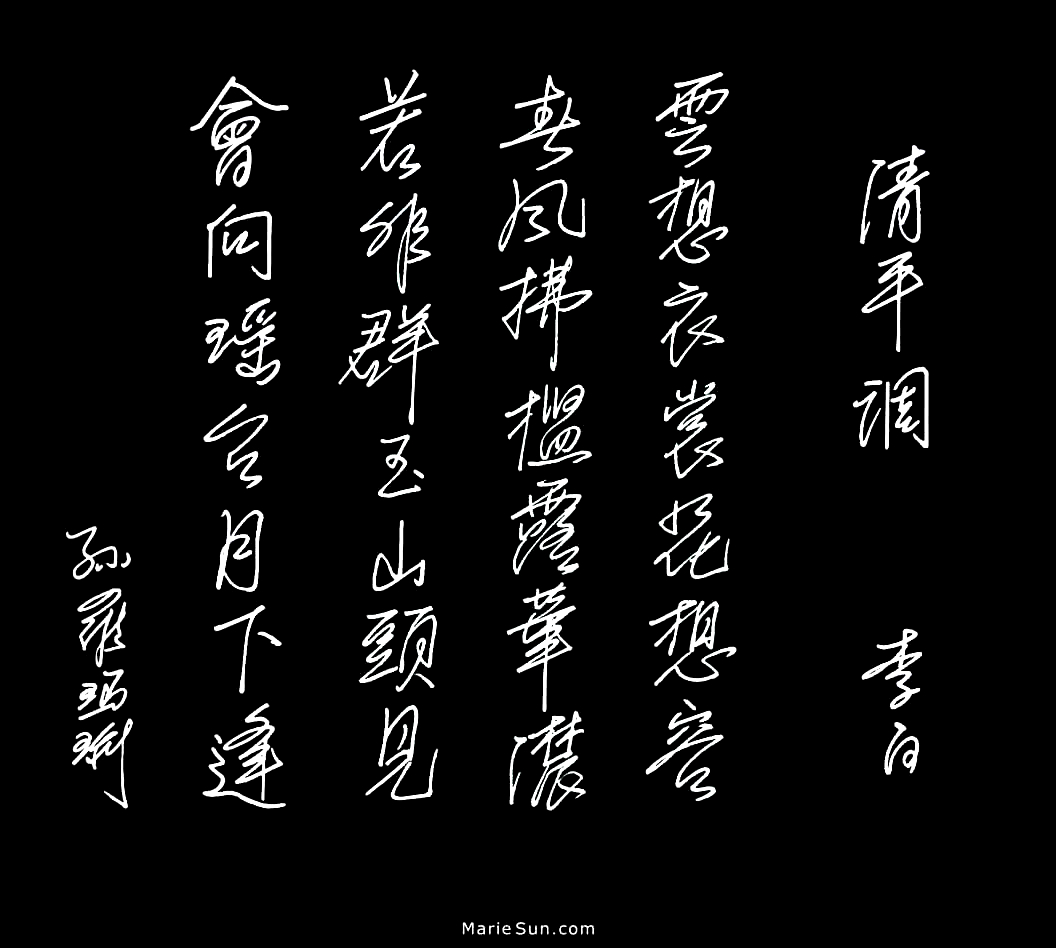 清平调 李白
雲想衣裳花想容
春风拂檻露華濃
若非群玉山頭見
會向瑶台月下逢
孫羅瑪琍
MarieSun.com